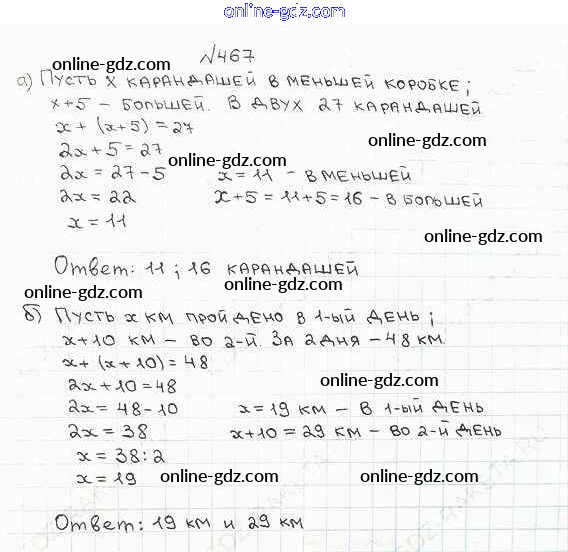 online-gdz.com
№467
online-gdz.com
online-gdz.com
а) Пусть х карандашей в меньшей коробке;
х+5 – большей. В двух 27 карандашей
online-gdz.com
х + (х+5) = 27
online-gdz.com
2х + 5 = 27
online-gdz.com
2х = 27 - 5 х = 11 – в меньшей
2х = 22 х+5 = 11+5 = 16 – в большей
х = 11
online-gdz.com
Ответ: 11 ; 16 карандашей
online-gdz.com online-gdz.com
б) Пусть х км пройдено в 1-ый день;
х+10 км – во 2-й. За 2 дня – 48 км.
х + (х + 10) = 48
online-gdz.com
2х + 10 = 48
2х = 48 - 10 х = 19 км – в 1-ый день
2х = 38 х+10 = 29 км – во 2-й день
х = 38 : 2
х = 19 online-gdz.com online-gdz.com
Ответ: 19 км и 29 км